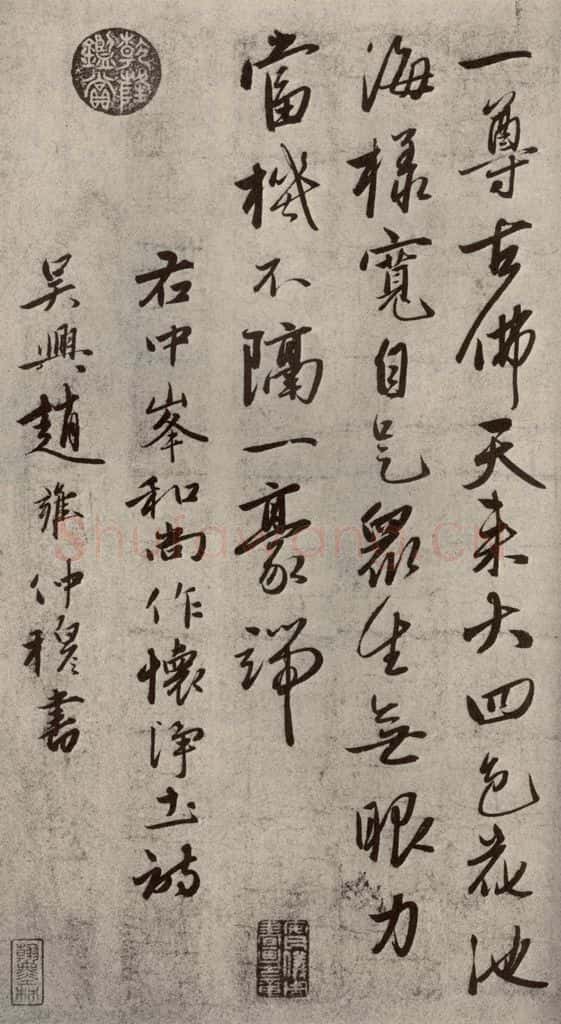 一尊古佛天来大四色花池
海樣寬自是眾生無眼力
當機不隔一豪端
右中峯和尚作懷淨土詩
吳興趙雍仲穆書
乾隆鑑賞
shufawang.cn